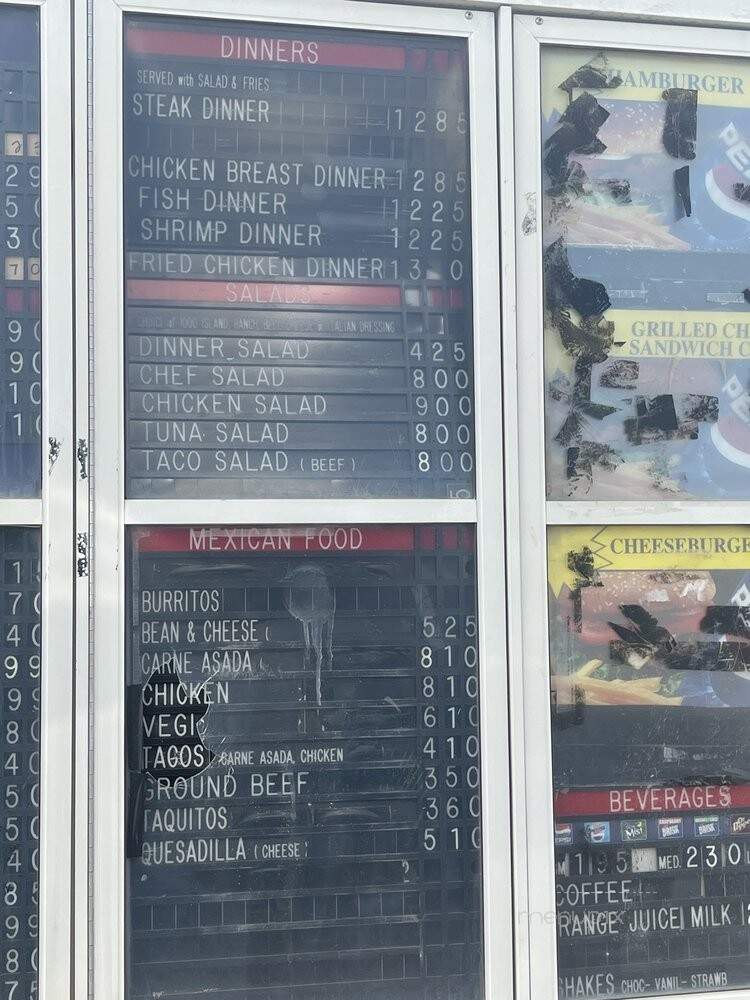 DINNERS
SERVED with SALAD & FRIES
STEAK DINNER 1285
CHICKEN BREAST DINNER 1285
FISH DINNER 1225
SHRIMP DINNER 1225
FRIED CHICKEN DINNER 13 0
SALADS
CHOICE of 1000 ISLAND, RANCH, BLEU CHEESE or ITALIAN DRESSING
DINNER SALAD 425
CHEF SALAD 800
CHICKEN SALAD 900
TUNA SALAD 800
TACO SALAD (BEEF) 800
MEXICAN FOOD
BURRITOS
BEAN & CHEESE ( 525
CARNE ASADA ( 810
CHICKEN 810
VEGI 610
TACOS CARNE ASADA, CHICKEN 410
GROUND BEEF 350
TAQUITOS 360
QUESADILLA (CHEESE 510
HAMBURGER
GRILLED CH
SANDWICH C
CHEESEBURGE
BEVERAGES
195 MED. 230
COFFEE
RANGE JUICE MILK
SHAKES CHOC- VANIL- STRAWB